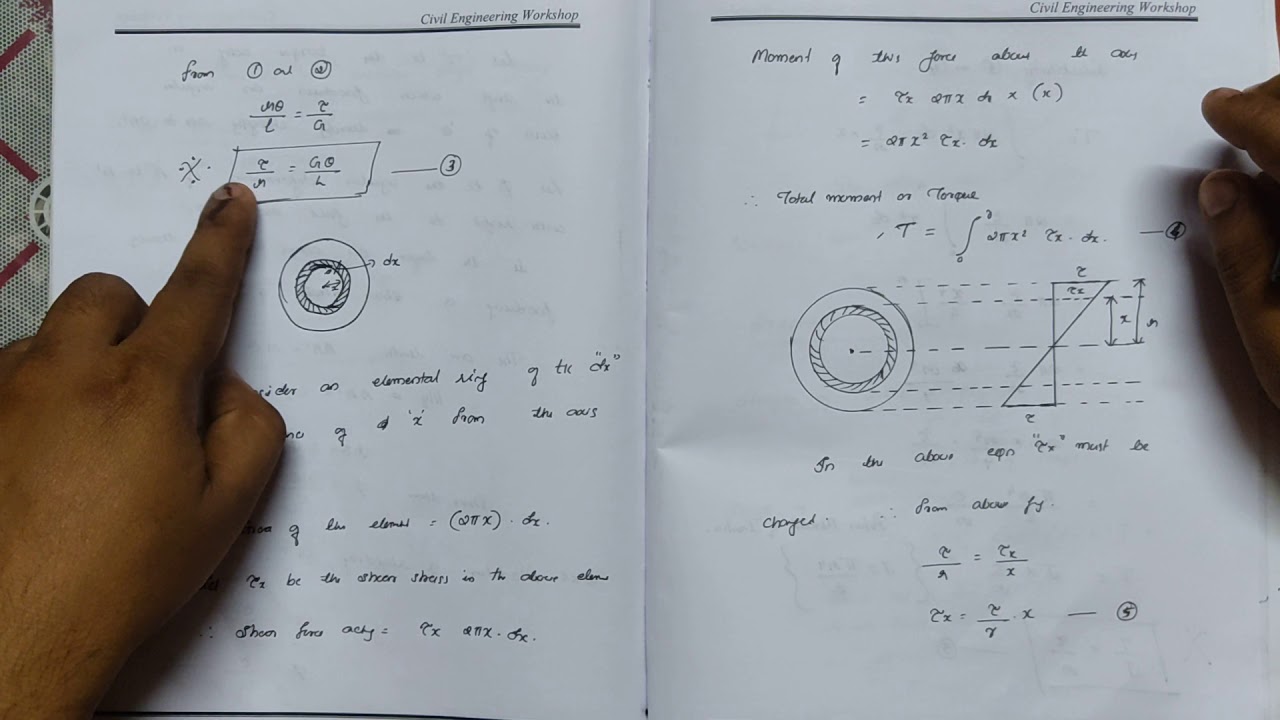 Civil Engineering Workshop
from ① and ②
rθ/l = τ/G
※. τ/r = Gθ/L —— ③
dx
r
x
sider an elemental ring of tk "dx"
of 'x' from the axis
Area of the element = (2πx) . dx.
τx be the shear stress in the above elem
∴ Shear force actg = τx 2πx . dx.
Civil Engineering Workshop
Moment of this force above the axis
= τx 2πx dx × (x)
= 2πx² τx. dx
∴ Total moment or Torque
, T = ∫₀ʳ 2πx² τx . dx. — ④
τ
τx
x
r
τ
In the above eqn "τx" must be
changed. ∴ from above fig.
τ/r = τx/x
τx = τ/r . x —— ⑤